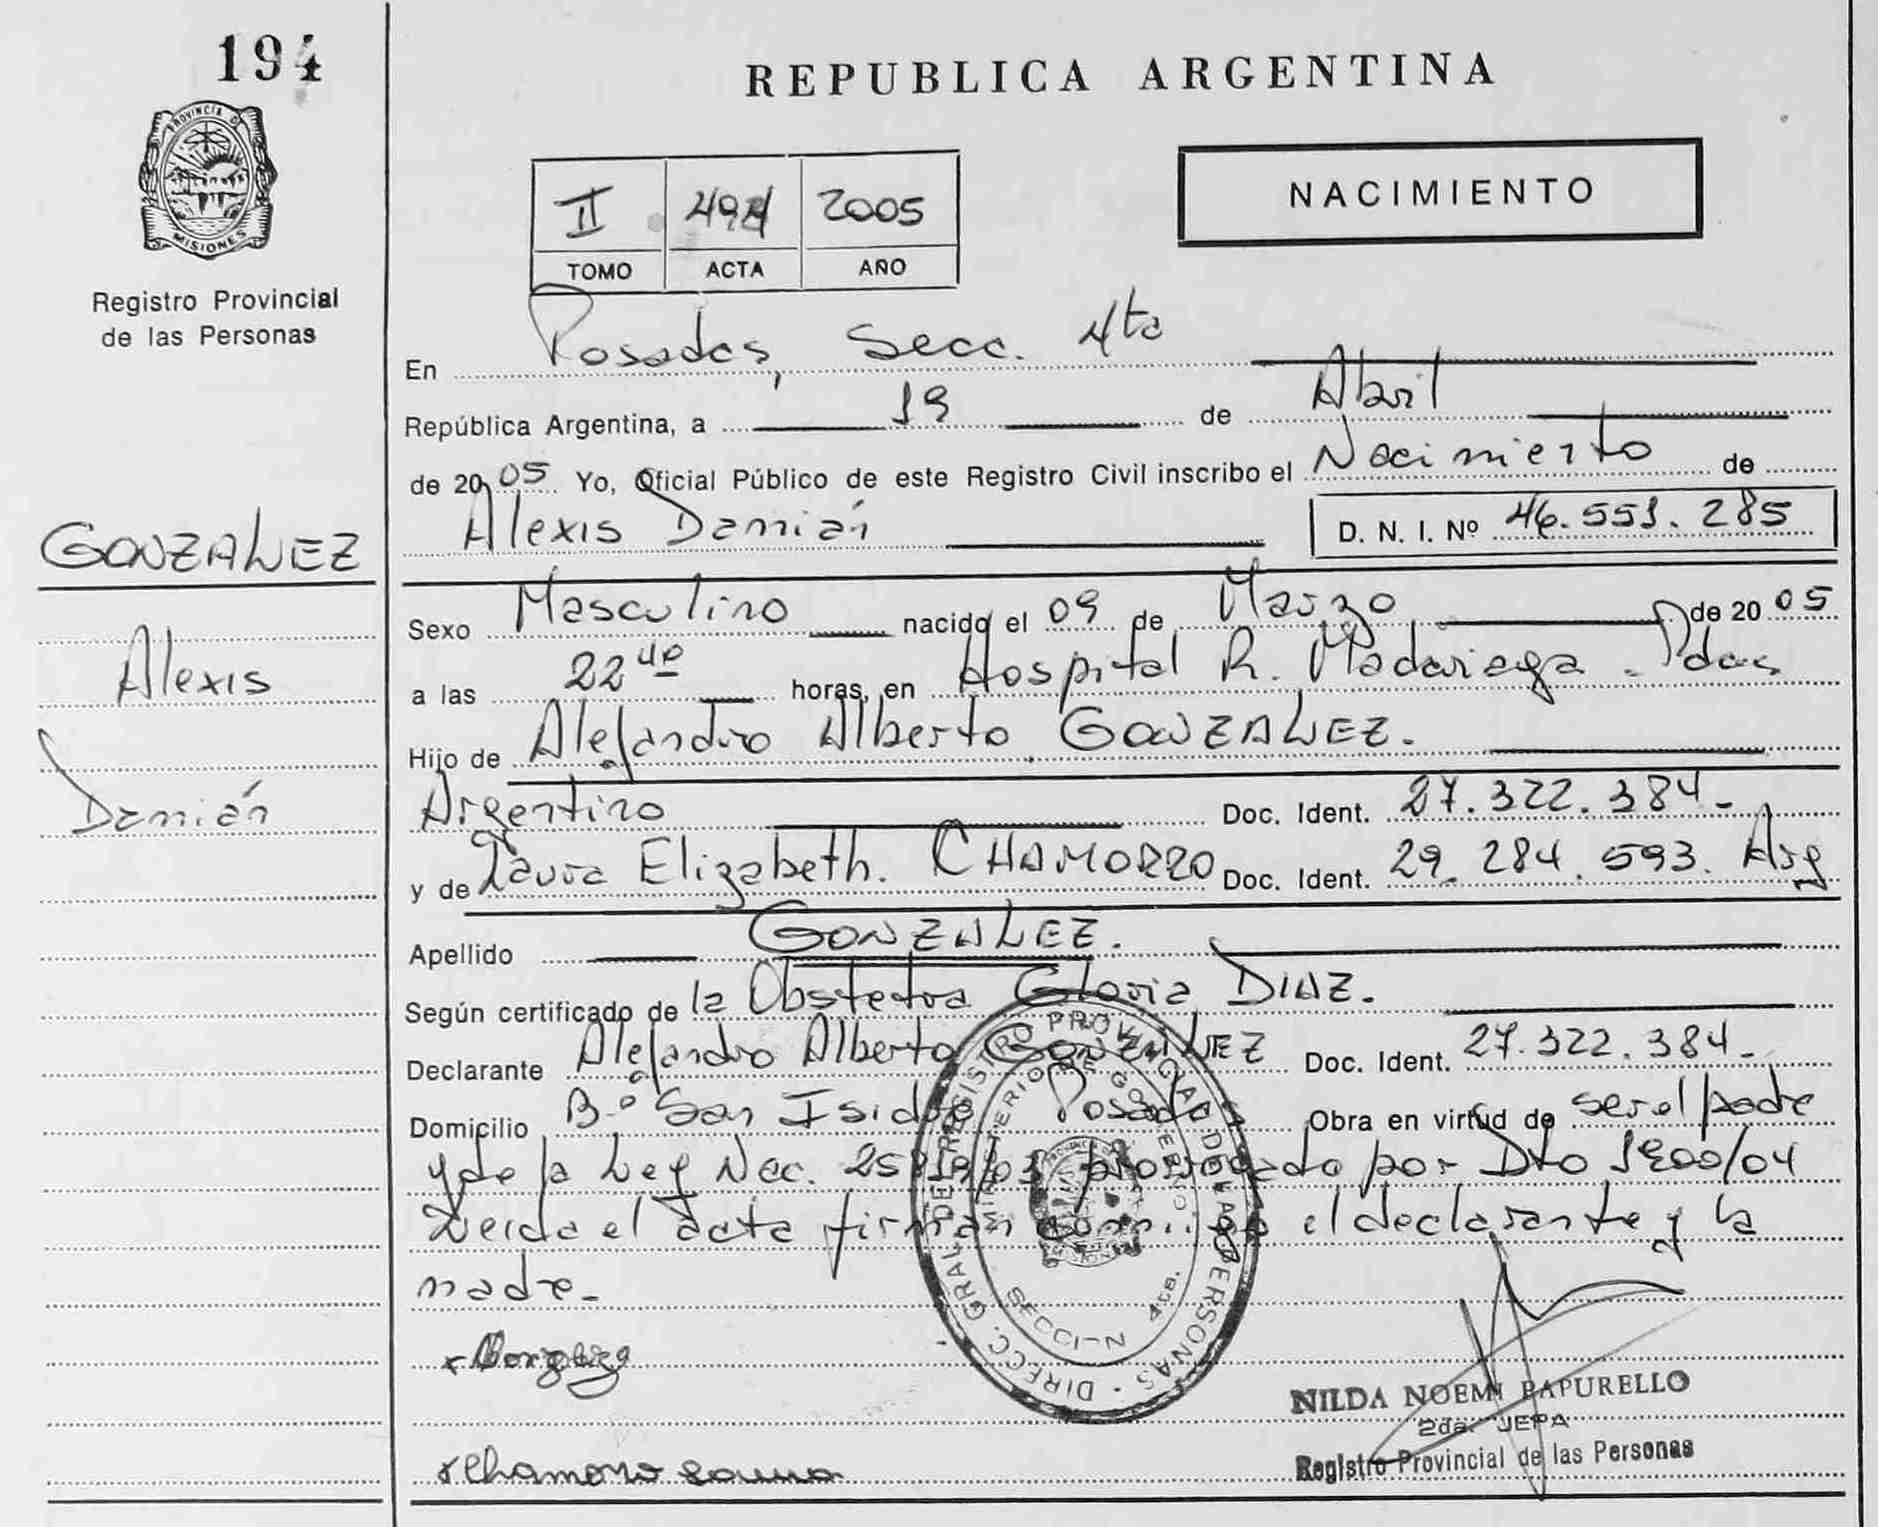 194
PROVINCIA D
MISIONES
Registro Provincial
de las Personas
REPUBLICA ARGENTINA
NACIMIENTO
II 494 2005
TOMO ACTA AÑO
En Posadas, Secc. 4ta
República Argentina, a 19 de Abril
de 2005 Yo, Oficial Público de este Registro Civil inscribo el Nacimiento de
Alexis Damián D. N. I. Nº 46.551.285
GONZALEZ
Alexis
Damián
Sexo Masculino nacido el 09 de Marzo de 2005
a las 22 40 horas, en Hospital R. Madariaga - Pdas
Hijo de Alejandro Alberto GONZALEZ.
Argentino Doc. Ident. 27.322.384-
y de Laura Elizabeth. CHAMORRO Doc. Ident. 29.284.593. Arg
Apellido GONZALEZ.
Según certificado de la Obstetra Gloria DIAZ.
Declarante Alejandro Alberto GONZALEZ Doc. Ident. 27.322.384-
Domicilio Bº San Isidro Posadas Obra en virtud de ser el padre
y de la Ley Nac. 25819/03 prorrogado por Dto 1900/04
Leida el acta firman conmigo el declarante y la
madre-
DIRECC. GRAL. DEL REGISTRO PROVINCIAL DE LAS PERSONAS
MINISTERIO DE GOBIERNO
SECCION 4ta.
NILDA NOEMI PAPURELLO
2da. JEFA
Registro Provincial de las Personas
x Chamorro Laura